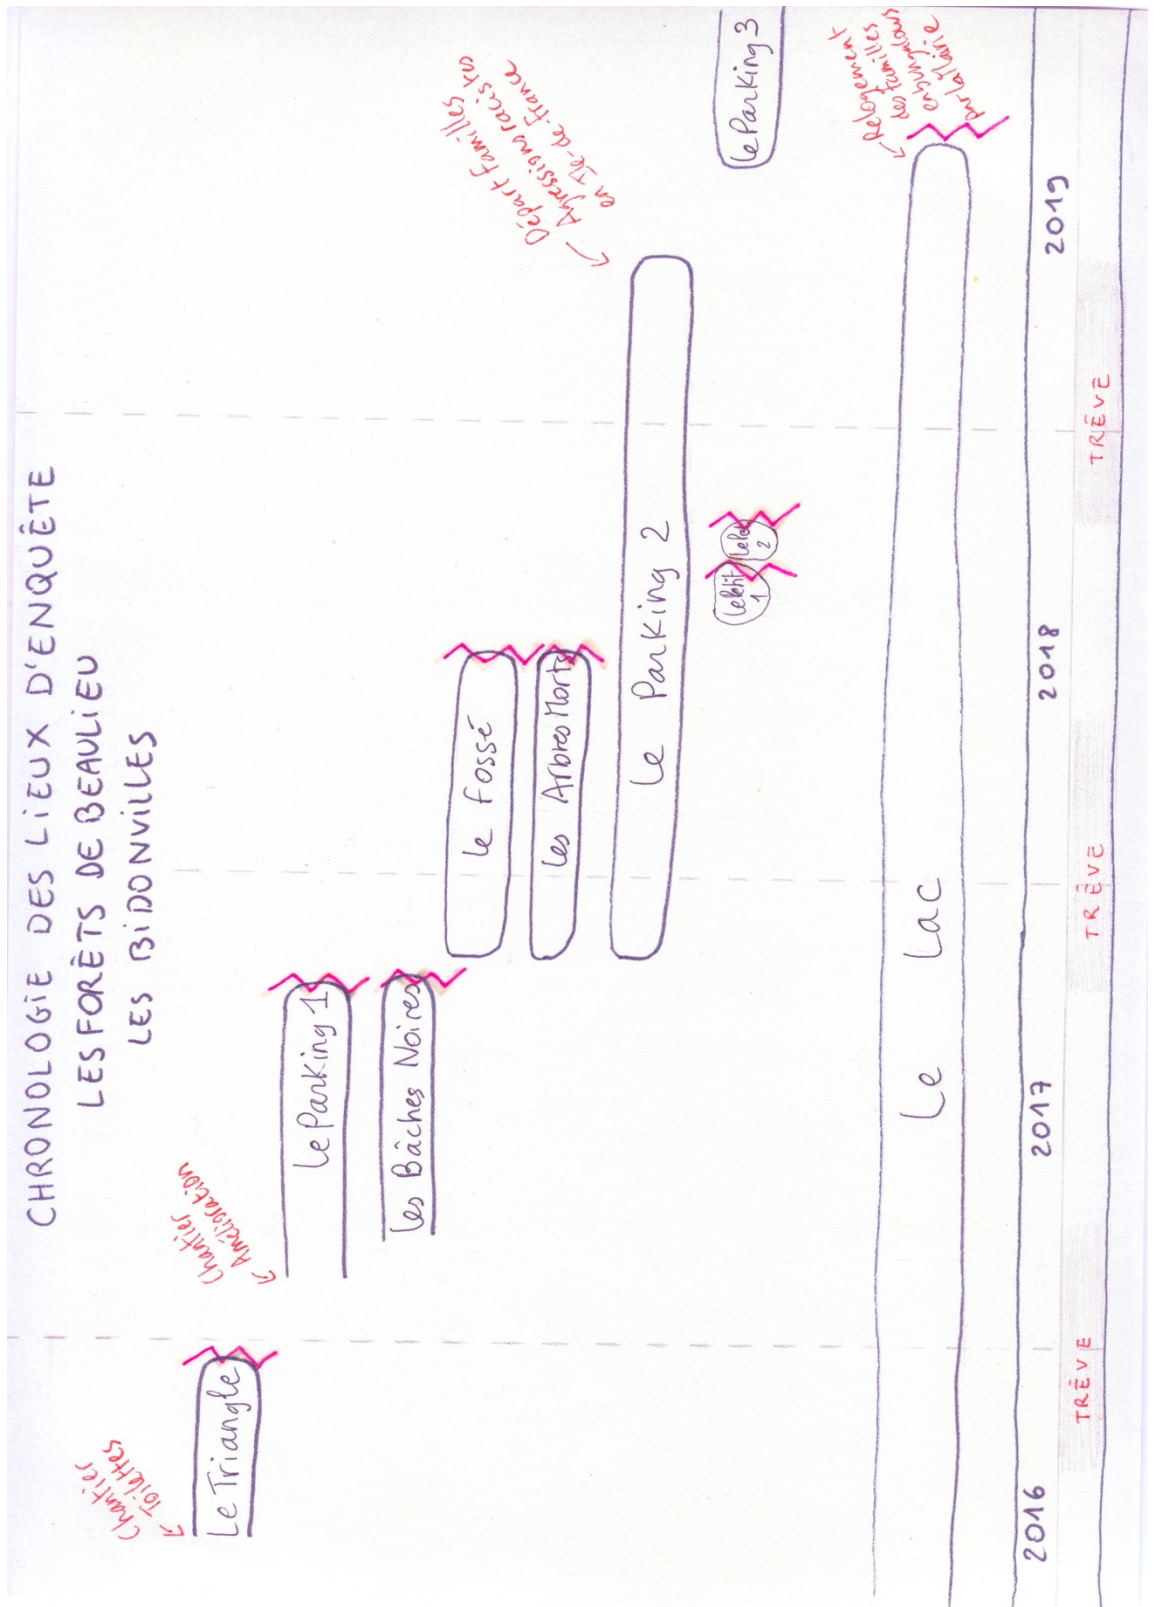 CHRONOLOGIE DES LIEUX D'ENQUÊTE
LES FORÊTS DE BEAULIEU
LES BIDONVILLES
Chantier
Toilettes
Le Triangle
Chantier
Amélioration
Le Parking 1
Les Bâches Noires
Le Fossé
Les Arbres Morts
Le Parking 2
Départ Familles
Agressions racistes
en Ile-de-France
Le Petit
1
Le Petit
2
Le Parking 3
Le Lac
Relogement
des familles
en bungalows
par la Mairie
2016
2017
2018
2019
TRÊVE
TRÊVE
TRÊVE